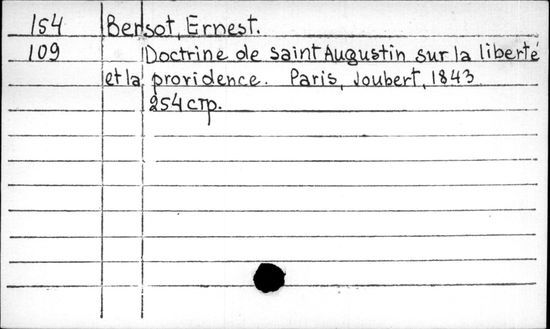 154 Bersot, Ernest.
109 Doctrine de saint Augustin sur la liberté
et la providence. Paris, Joubert, 1843
254 стр.